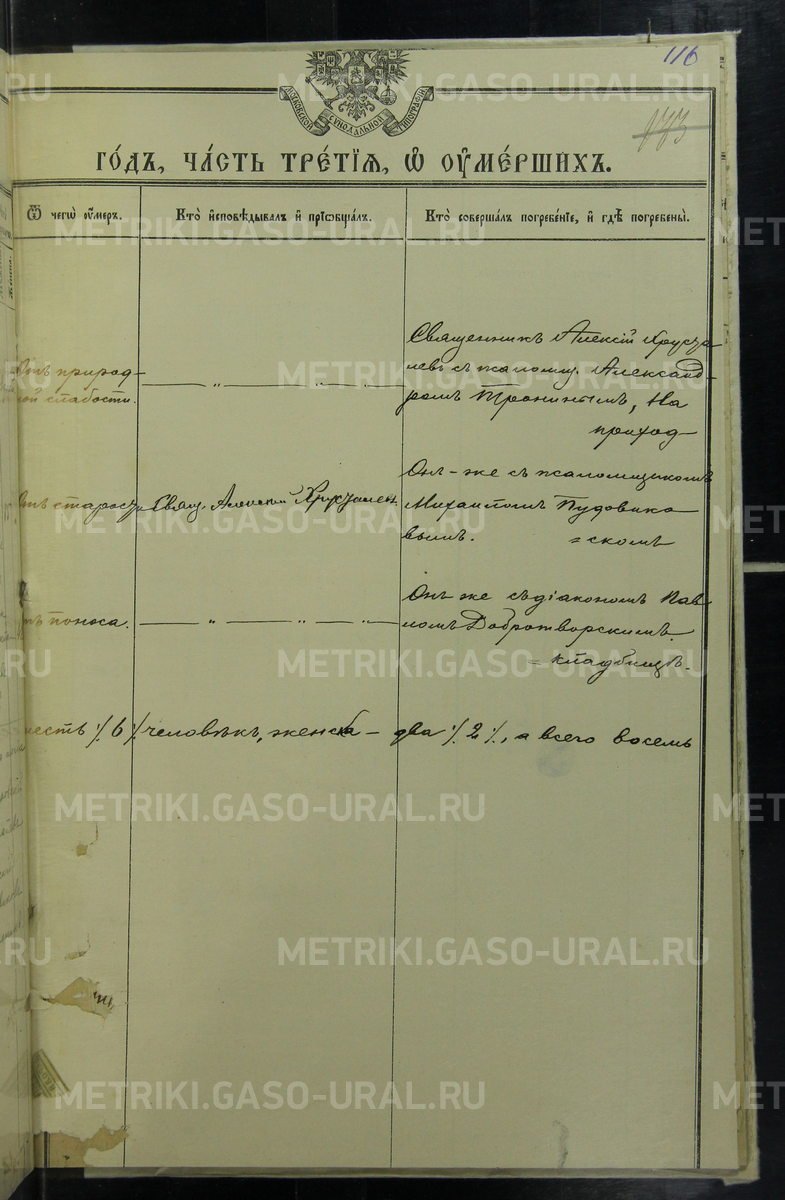 116
МОСКОВСКОЙ СѴНОДАЛЬНОЙ ТИПОГРАФІИ
ГО́ДЪ, ЧА́СТЬ ТРЕ́ТІѦ, Ѡ҆ ОУ҆МЕ́РШИХЪ.
Ѿ чегѡ̀ оу҆́меръ.
Кто̀ и҆сповѣ́дывалъ и҆ прїѡбща́лъ.
Кто̀ соверша́лъ погребе́нїе, и҆ гдѣ̀ погребены̀.
Отъ природ-
ной слабости.
Священникъ Алексій Хрусталевъ съ псаломщ. Александ-
ромъ Трониным, На
приход-
Отъ старости
Свящ. Алексій Хрусталев.
Онъ-же съ псаломщикомъ
Михаиломъ Пудовико
вымъ. =скомъ
поноса.
Онъ же съ діакономъ Пав-
ломъ Добротворскимъ.
= кладбищѣ.
шесть ٪ 6 ٪ человѣкъ, женска – два ٪ 2 ٪, а всего восемь
METRIKI.GASO-URAL.RU